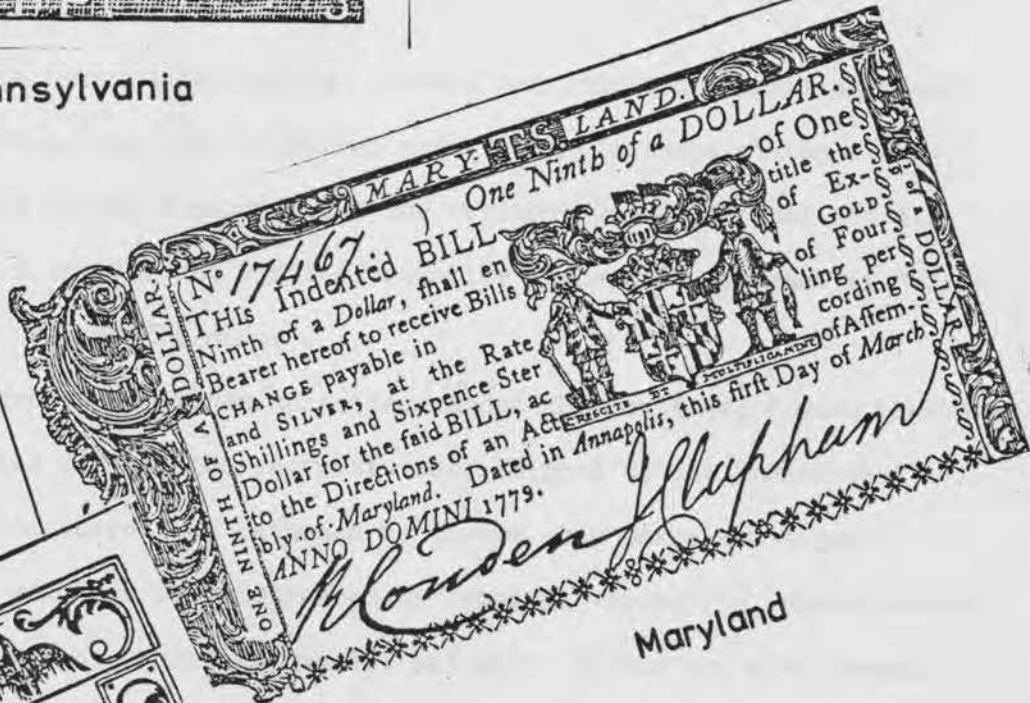 nnsylvania
MARY T S LAND.
One Ninth of a DOLLAR.
No 17467
THIs Indented BILL of One
Ninth of a Dollar, ſhall en title the
Bearer hereof to receive Bills of Ex-
CHANGE payable in GOLD
and SILVER, at the Rate of Four
Shillings and Sixpence Ster ling per
Dollar for the ſaid BILL, ac cording
to the Directions of an Act of Aſſem-
bly of Maryland. Dated in Annapolis, this firſt Day of March
ANNO DOMINI 1779.
CRESCITE ET MULTIPLICAMINI
ONE NINTH OF A DOLLAR.
of a DOLLAR
R Couden J Clapham
Maryland